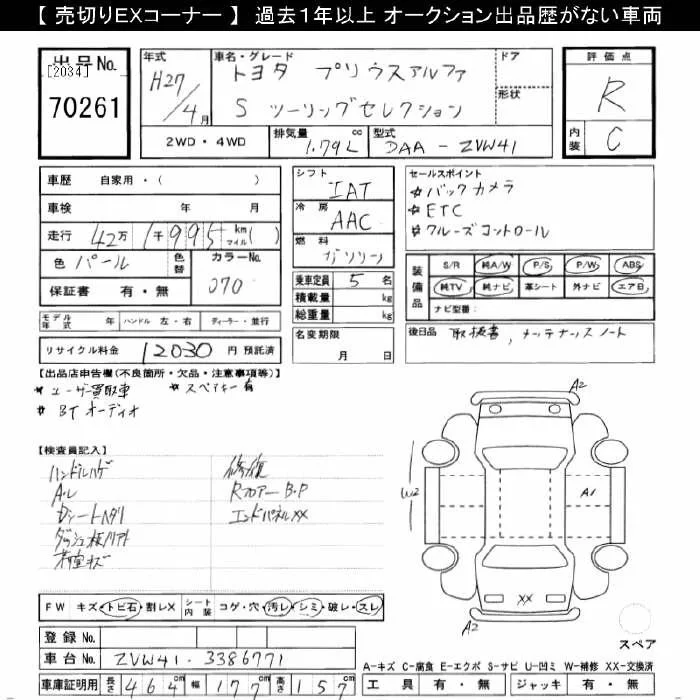 【 売切りEXコーナー 】 過去1年以上 オークション出品歴がない車両
出品No.
[2034]
70261
年式
H27/4月
車名・グレード
トヨタ プリウスアルファ
S ツーリングセレクション
ドア
形状
評価点
R
内装 C
2WD・4WD
排気量 1.79L cc
型式 DAA-ZVW41
車歴 自家用・( )
車検 年 月
走行 42万 1千995 km マイル( )
色 パール
色替
カラーNo. 070
保証書 有・無
モデル年式 年 ハンドル 左・右 ディーラー・並行
リサイクル料金 12030 円 預託済
シフト IAT
冷房 AAC
燃料 ガソリン
乗車定員 5 名
積載量 kg
総重量 kg
名変期限 月 日
セールスポイント
*バックカメラ
*ETC
*クルーズコントロール
装備品
S/R 純A/W P/S P/W ABS
純TV 純ナビ 革シート 外ナビ エア日
ナビ型番:
後日品 取扱書, メンテナンスノート
【出品店申告欄(不良箇所・欠品・注意事項等)】
*ユーザー買取車 *スペアキー有
*BTオーディオ
【検査員記入】
ハンドルハゲ
A・L
Dシートヘタリ
修復
Rフロアー B・P
エンドパネルXX
A2
W2
A1
XX
A2
スペア
FW キズ・トビ石・割レX シート内装 コゲ・穴・汚レ・シミ・破レ・スレ
登録No.
車台No. ZVW41-3386771
車庫証明用 長さ 464cm 幅 177cm 高さ 157cm
A-キズ C-腐食 E-エクボ S-サビ U-凹ミ W-補修 XX-交換済
工具 有・無 ジャッキ 有・無